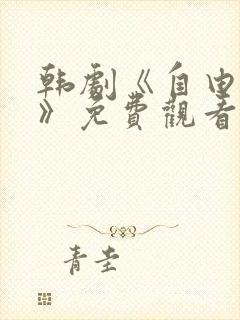 韩劇《自由
》免費觀看
青圭